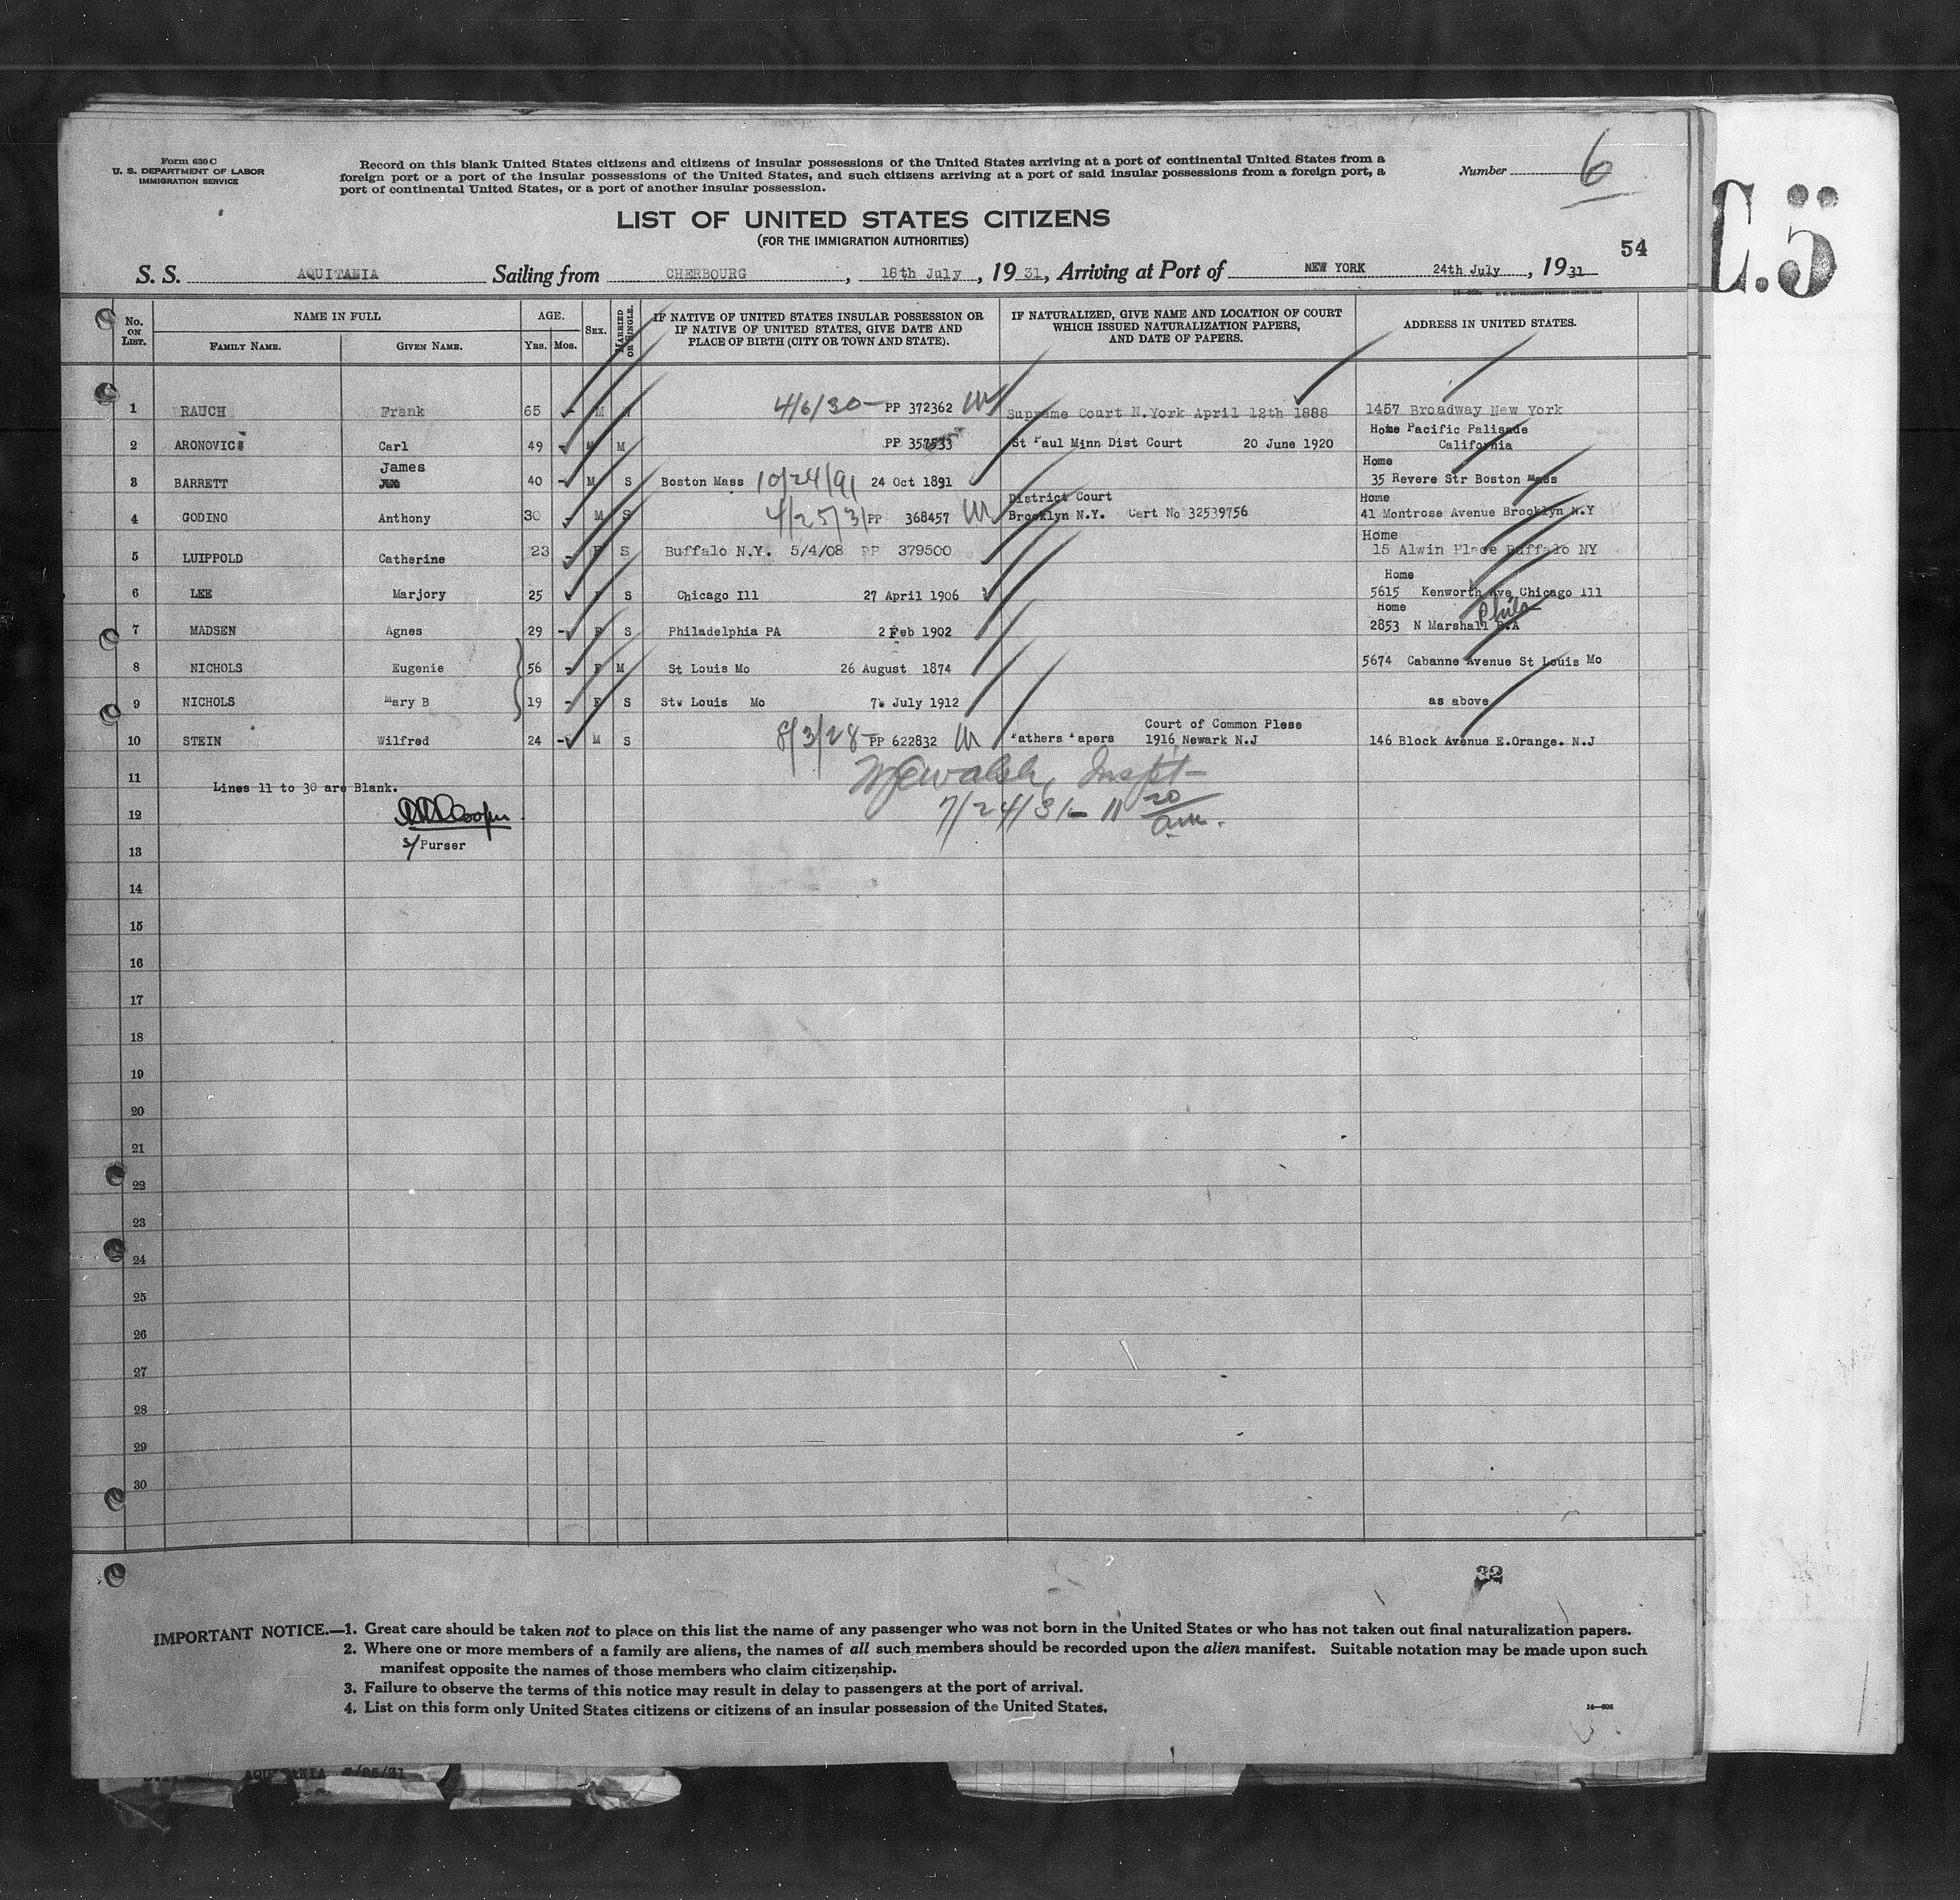 Form 630 C
U. S. DEPARTMENT OF LABOR
IMMIGRATION SERVICE
Record on this blank United States citizens and citizens of insular possessions of the United States arriving at a port of continental United States from a
foreign port or a port of the insular possessions of the United States, and such citizens arriving at a port of said insular possessions from a foreign port, a
port of continental United States, or a port of another insular possession.
Number 6
C.5
LIST OF UNITED STATES CITIZENS
(FOR THE IMMIGRATION AUTHORITIES)
54
S. S. AQUITANIA Sailing from CHERBOURG, 18th July, 1931, Arriving at Port of NEW YORK 24th July, 1931
No. ON LIST. NAME IN FULL AGE. SEX. MARRIED OR SINGLE. IF NATIVE OF UNITED STATES INSULAR POSSESSION OR IF NATIVE OF UNITED STATES, GIVE DATE AND PLACE OF BIRTH (CITY OR TOWN AND STATE). IF NATURALIZED, GIVE NAME AND LOCATION OF COURT WHICH ISSUED NATURALIZATION PAPERS, AND DATE OF PAPERS. ADDRESS IN UNITED STATES.
FAMILY NAME. GIVEN NAME. YRS. MOS.
1 RAUCH Frank 65 - M 4/6/30- PP 372362 Supreme Court N.York April 12th 1888 1457 Broadway New York
2 ARONOVIC Carl 49 - M M PP 357533 St Paul Minn Dist Court 20 June 1920 Home Pacific Palisade California
3 BARRETT James 40 - M S Boston Mass 10/24/91 24 Oct 1891 Home 35 Revere Str Boston Mass
4 GODINO Anthony 30 - M S 4/25/31 PP 368457 District Court Brooklyn N.Y. Cert No 32539756 Home 41 Montrose Avenue Brooklyn N.Y
5 LUIPPOLD Catherine 23 - F S Buffalo N.Y. 5/4/08 PP 379500 Home 15 Alwin Place Buffalo NY
6 LEE Marjory 25 - F S Chicago Ill 27 April 1906 Home 5615 Kenworth Ave Chicago Ill
7 MADSEN Agnes 29 - F S Philadelphia PA 2 Feb 1902 Home 2853 N Marshall P.A Phila
8 NICHOLS Eugenie 56 - F M St Louis Mo 26 August 1874 5674 Cabanne Avenue St Louis Mo
9 NICHOLS Mary B 19 - F S St. Louis Mo 7 July 1912 as above
10 STEIN Wilfred 24 - M S 8/3/28- PP 622832 Fathers Papers Court of Common Plese 1916 Newark N.J 146 Block Avenue E.Orange. N.J
11 Lines 11 to 30 are Blank. Walsh, Inspt-
12 Cooper 7/24/31- 11 20 am.
13 Purser
14
15
16
17
18
19
20
21
22
23
24
25
26
27
28
29
30
32
IMPORTANT NOTICE.—1. Great care should be taken not to place on this list the name of any passenger who was not born in the United States or who has not taken out final naturalization papers.
2. Where one or more members of a family are aliens, the names of all such members should be recorded upon the alien manifest. Suitable notation may be made upon such
manifest opposite the names of those members who claim citizenship.
3. Failure to observe the terms of this notice may result in delay to passengers at the port of arrival.
4. List on this form only United States citizens or citizens of an insular possession of the United States.
14—608
AQUITANIA 7/25/31